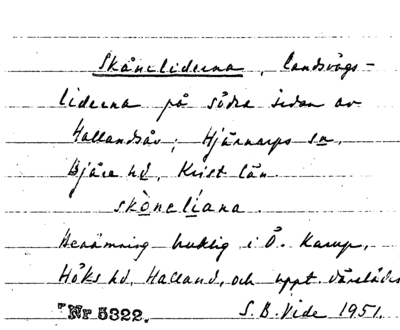 Skåneliderna, landsvägs-
liderna på södra sidan av
Hallandsås; Hjärnarps sn,
Bjäre hd, Krist. län.
skòneli̇́ana.
Benämning bruklig i Ö. Karup,
Höks hd, Halland, och uppt. därstädes
Nr 5322. S.B. Vide 1951.